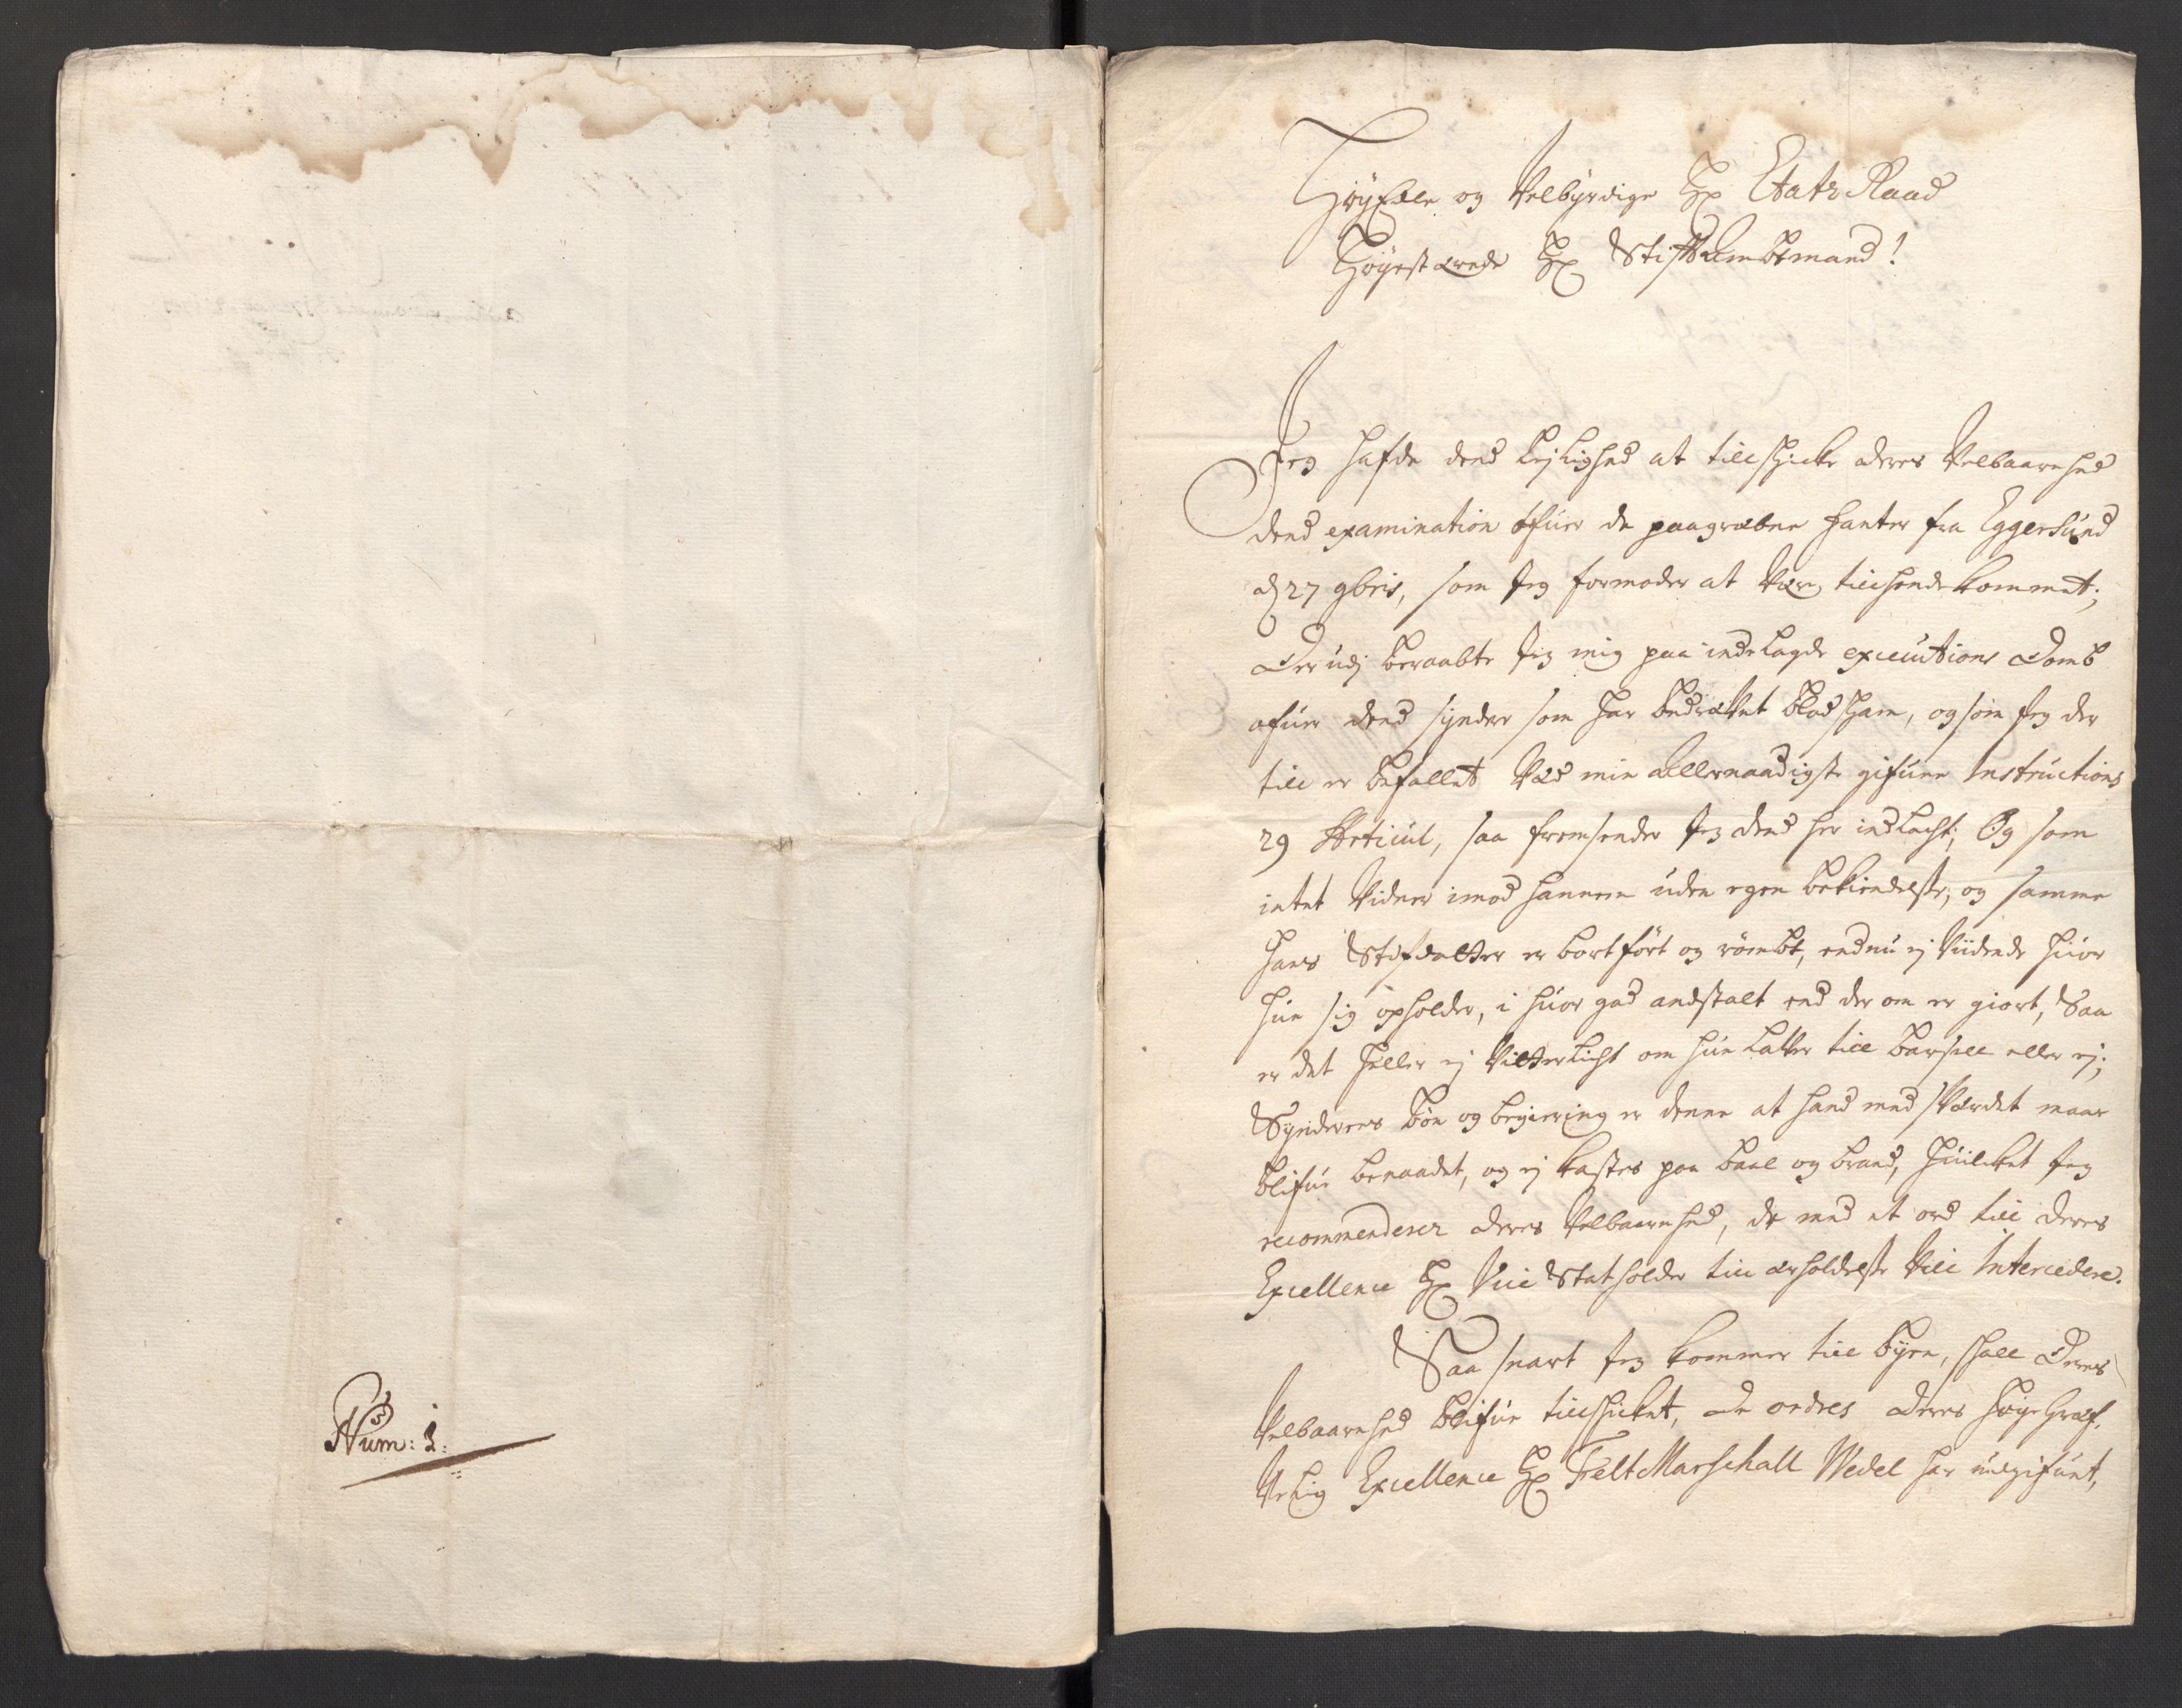 Num: 1:
HøyEdle og Velbyrdige Hr Etatz Raad
Høyestærede Hr Stiftambtmand!
Jeg hafde dend Leylighed at tillschicke deres Velbaarenhed
dend examination ofuer de paagrebne fanter fra Eggersund
d 27 9bris, som Jeg formoder at Være tillhende kommet;
Der udj beraabte Jeg mig paa indelagde executions Domb
ofuer dend synder som har bedrefvet blodscham, og som Jeg der
till er befallet Ved min allernaadigste gifuene Instructions
29 Articul, saa fremsender Jeg dend her indlacht; Og som
intet Vidner imod hannem uden egen bekiendelse, og samme
hans Stifdatter er bortført og rømbt, endnu ej Vidende huor
hun sig opholder, i huor god andstalt end der om er giort, Saa
er det heller ej Vitterlicht om hun Latter till barsell eller ej;
Synderens bøn og begiering er denne at hand med sverdet maae
blifue benaadet, og ej kastes paa baal og brand, huilcket Jeg
recommenderer deres Velbaarenhed, de med et ord till deres
Excellence Hr Vice Statholder till erholdelse Vill Intercedere.
Saa snart Jeg kommer till byen, schall Deres
Velbaarenhed blifue tillschicket, de ordres deres høy Gref.
Velig Excellence Hr Felt Marschall Wedel har udgifuet,